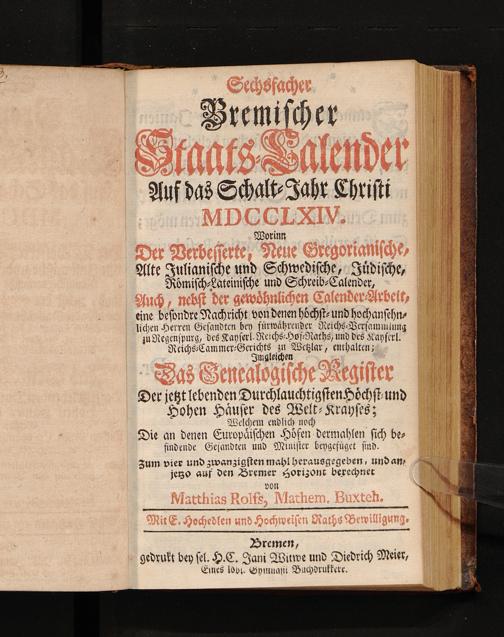 Sechsfacher
Bremischer
Staats-Calender
Auf das Schalt-Jahr Christi
MDCCLXIV.
Worinn
Der Verbesserte, Neue Gregorianische,
Alte Julianische und Schwedische, Jüdische,
Römisch-Lateinische und Schreib-Calender,
Auch, nebst der gewöhnlichen Calender-Arbeit,
eine besondre Nachricht von denen höchst- und hochansehn-
lichen Herren Gesandten bey fürwährender Reichs-Versammlung
zu Regenspurg, des Kayserl. Reichs-Hof-Raths, und des Kayserl.
Reichs-Cammer-Gerichts zu Wetzlar, enthalten;
Imgleichen
Das Genealogische Register
Der jetzt lebenden Durchlauchtigsten Höchst- und
Hohen Häuser des Welt-Krayses;
Welchem endlich noch
Die an denen Europäischen Höfen dermahlen sich be-
findende Gesandten und Minister beygefüget sind.
Zum vier und zwanzigsten mahl herausgegeben, und an-
jetzo auf den Bremer Horizont berechnet
von
Matthias Rolfs, Mathem. Buxteh.
Mit E. Hochedlen und Hochweisen Raths Bewilligung.
Bremen,
gedrukt bey sel. H.C. Jani Witwe und Diedrich Meier,
Eines löbl. Gymnasii Buchdrukkere.